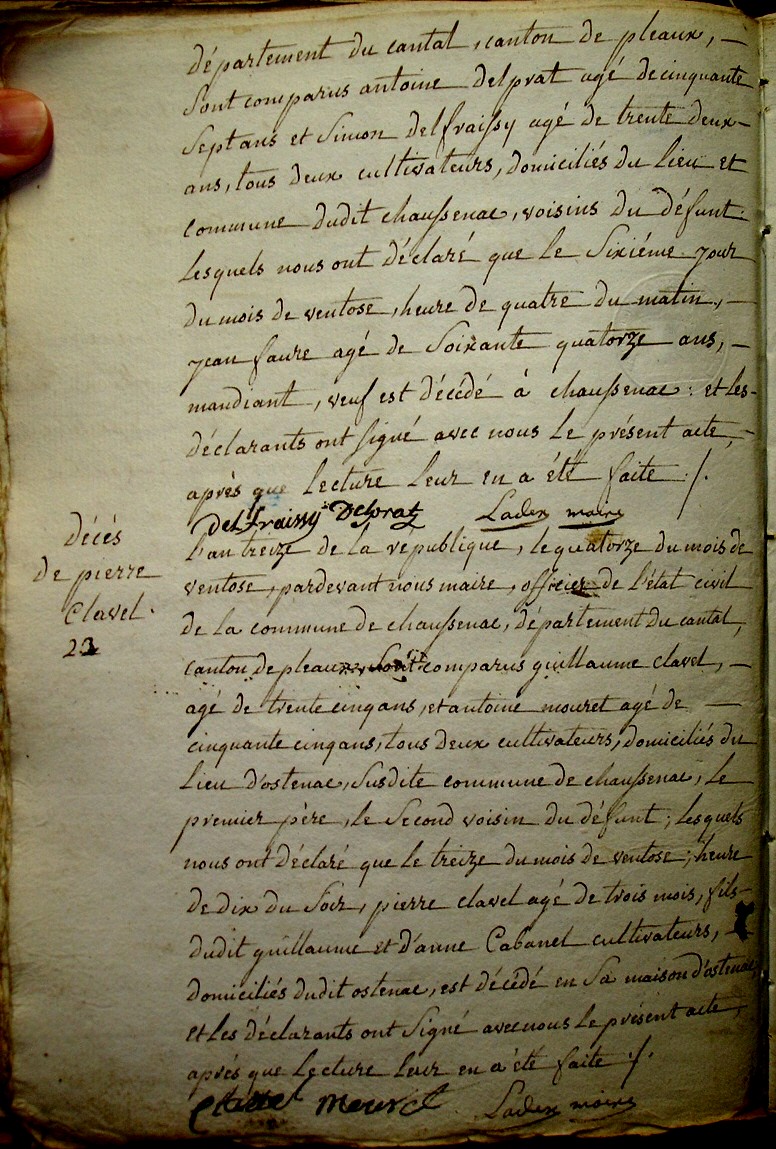 département du cantal, canton de pleaux, —
Sont comparus antoine delprat agé de cinquante
Sept ans et Simon delfraissy agé de trente deux
ans, tous deux cultivateurs, domiciliés du lieu et
commune dudit chaussenac, voisins du défunt.
lesquels nous ont déclaré que le Sixiéme jour
du mois de ventose, heure de quatre du matin, —
jean faure agé de Soixante quatorze ans, —
mandiant, veuf est décédé à chaussenac : et les
déclarants ont signé avec nous le présent acte, —
après que lecture leur en a été faite ./.
Delfraissy Delprat Lader maire
Décés
de pierre
Clavel.
23
l'an treize de la république, le quatorze du mois de
ventose, pardevant nous maire, officier de l'état civil
de la commune de chaussenac, département du cantal,
canton de pleaux, Sont comparus guillaume clavel, —
agé de trente cinq ans, et antoine mouret agé de —
cinquante cinq ans, tous deux cultivateurs, domiciliés du
lieu d'ostenac, Susdite commune de chaussenac, le
premier père, le Second voisin du défunt ; lesquels
nous ont déclaré que le treize du mois de ventose, heure
de dix du Soir, pierre clavel agé de trois mois, fils
dudit guillaume et d'anne Cabanel cultivateurs, —
domiciliés dudit ostenac, est décédé en Sa maison d'ostenac,
et les déclarants ont Signé avec nous le présent acte,
après que lecture leur en a été faite ./.
Clavel Mouret Lader maire